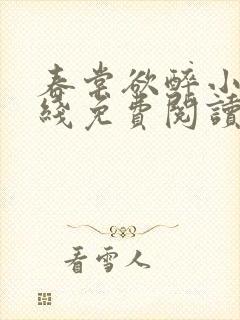 春棠欲醉小
綫免費閱讀
看雪人